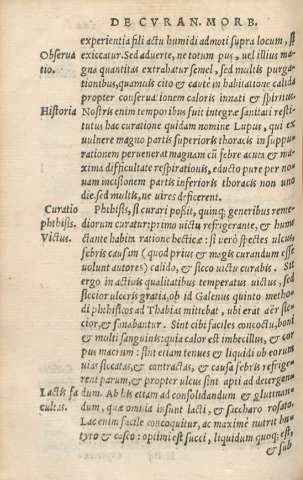 DE CVRAN. MORB.
experientia fili actu humidi admoti supra locum, si
Observa exiccatur. Sed aduerte, ne totum pus, uel illius ma-
tio. gna quantitas extrahatur semel, sed multis purga-
tionibus, quamuis cito & cauté in habitatione calida
propter conseruationem caloris innati & spiritus.
Historia Nostris enim temporibus fuit integrae sanitati resti-
tutus hac curatione quidam nomine Lupus, qui ex
uulnere magno partis superioris thoracis in suppu-
rationem peruenerat magnam cū febre acuta & ma-
xima difficultate respirationis, educto pure per no-
uam incisionem partis inferioris thoracis non uno
die. sed multis, ne uires deficerent.
Curatio Phthisis, si curari possit, quinq; generibus reme-
phthisis. diorum curatur: primo uictu refrigerante, & hume
Victus. ctante habita ratione hecticae: si uerò spectes ulcus,
febris causam (quod prius & magis curandum esse
uolunt autores) calido, & sicco uictu curabis. Sit
ergo in actiuis qualitatibus temperatus uictus, sed
siccior ulceris gratia, ob id Galenus quinto metho-
di phthisicos ad Thabias mittebat, ubi erat aër sic-
cior, & sanabantur. Sint cibi faciles concoctu, boni
& multi sanguinis: quia calor est imbecillus, & cor
pus macrum: sint etiam tenues & liquidi ob eorum
uias siccatas, & contractas, & causa febris refrige-
rent parum, & propter ulcus sint apti ad detergen-
Lactis fa dum. Ab his etiam ad consolidandum & glutinan-
cultas. dum, quae omnia insunt lacti, & saccharo rosato.
Lac enim facile concoquitur, ac maximè nutrit bu-
tyro & caseo: optimi est succi, liquidum quoq; est,
& sub